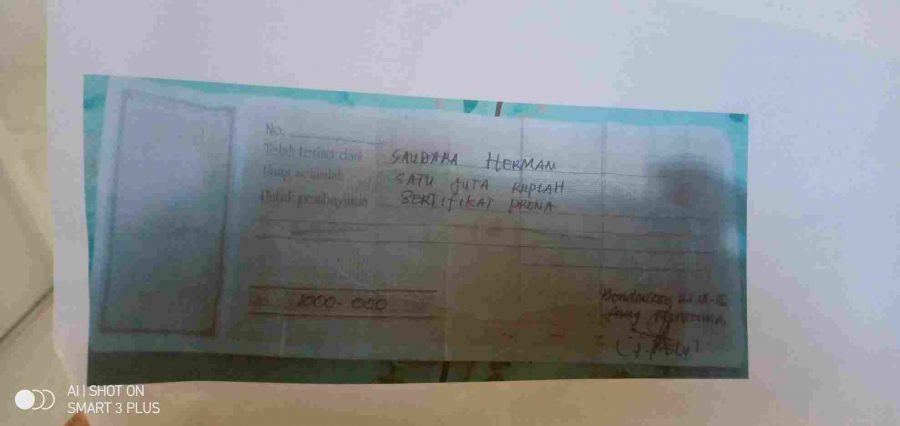 No.
Telah terima dari SAUDARA HERMAN
Uang sejumlah SATU JUTA RUPIAH
Untuk pembayaran SERTIFIKAT PRENA
Rp. 1000.000
Yang menerima,
AI | SHOT ON
SMART 3 PLUS